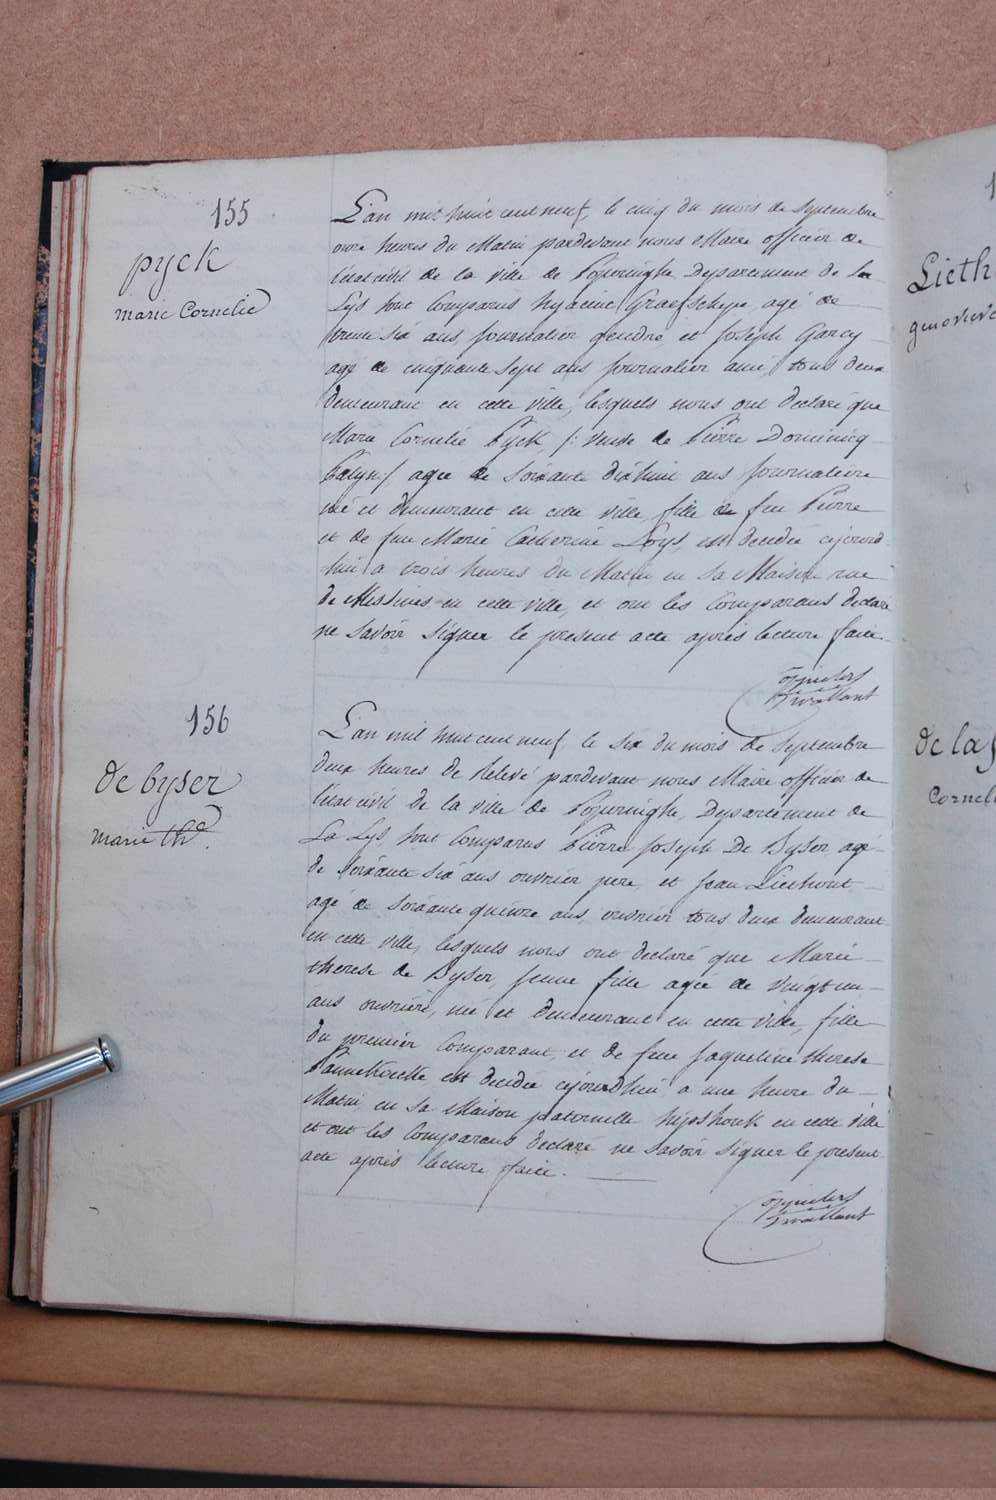 155
pyck
marie Cornelie
L'an mil huit cent neuf, le cinq du mois de Septembre
onze heures du Matin pardevant nous Maire officier de
l'etat civil de la ville de Poperinghe Departement de la
Lys sont Comparus hyacint Graefschepe agé de
trente six ans, journalier gendre, et Joseph Garcy
agé de cinquante sept ans journalier ami, tous deux
demeurant en cette ville, lesquels nous ont declaré que
Marie Cornelie Pyck, /: veuve de Pierre Dominicq
Calyn :/ agée de Soixante dixhuit ans journaliere
née et demeurant en cette ville fille de feu Pierre
et de feue Marie Catherine Loys, est decedée cejourd
hui a trois heures du Matin en sa Maison rue
de Messines en cette ville, et ont les Comparans declaré
ne savoir signer le present acte après lecture faite.
156
de byser
marie thé.
L'an mil huit cent neuf, le six du mois de Septembre
deux heures de Relevé pardevant nous Maire officier de
l'etat civil de la ville de Poperinghe, Departement de
La Lys, sont Comparus Pierre Joseph De Byser, agé
de soixante six ans ouvrier pere, et Jean Liethout
agé de soixante quinze ans, ouvrier tous deux demeurant
en cette ville, lesquels nous ont declaré que Marie
therese de Byser, jeune fille agée de vingt un
ans ouvriere, née et demeurant en cette ville, fille
du premier Comparant, et de feue Jaqueline therese
Pannekoecke est decedée cejourdhui a une heure du
Matin en sa Maison paternelle hipshoek en cette ville
et ont les Comparans declaré ne savoir signer le present
acte après lecture faite.
Lieth
genovieve
de la
Corneli